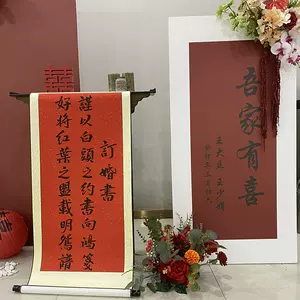 囍
訂婚書
謹以白頭之約書向鴻箋
好將紅葉之盟載明鴛譜
吾家有喜